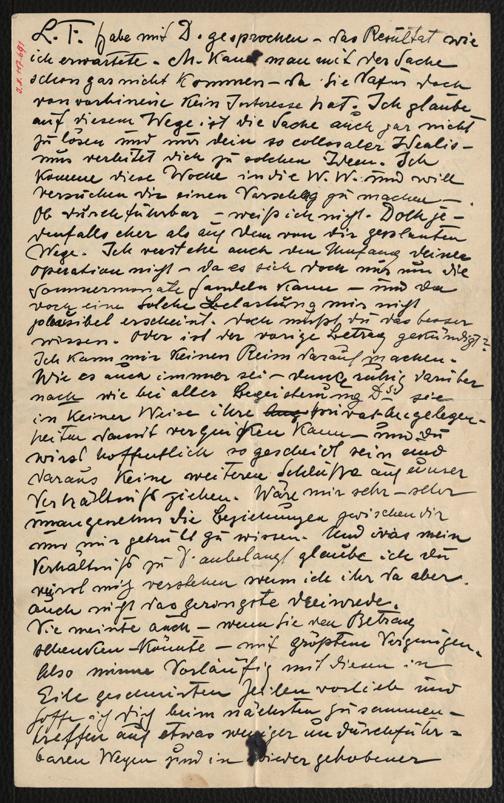 L.T. habe mit D. gesprochen - das Resultat wie
ich erwartete - M. kann man mit der Sache
schon gar nicht kommen - da sie dafür doch
von vorhinein kein Interesse hat. Ich glaube
auf diesem Wege ist die Sache auch gar nicht
zu lösen und nur dein so collosaler Idealis-
mus verleitet dich zu solchen Ideen. Ich
komme diese Woche in die W. W. und will
versuchen dir einen Vorschlag zu machen -
Ob durchführbar - weiß ich nicht. Doch je-
denfalls eher als auf dem von dir geplanten
Wege. Ich verstehe auch den Umfang deiner
Operation nicht - da es sich doch nur um die
Sommermonate handeln kann - und da
doch eine solche Belastung mir nicht
plausibel erscheint. Doch mußt du das besser
wissen. Oder ist der vorige Betrag gekündigt?
Ich kann mir keinen Reim darauf machen.
Wie es auch immer sei - denke ruhig darüber
nach wie bei aller Begeisterung D. sie
in keiner Weise ihre privat angelegen-
heiten damit verquicken kann - und du
wirst hoffentlich so gescheidt sein und
daraus keine weiteren Schlüsse auf unser
Verhältniß ziehen. Wäre mir sehr - sehr
unangenehm die Beziehungen zwischen dir
und mir getrübt zu wissen. Und was mein
Verhältniß zu D. anbelangt glaube ich du
wirst mich verstehen wenn ich ihr da aber
auch nicht das geringste dreinrede.
Sie meinte auch - wenn sie den Betrag
schenken könnte - mit größtem Vergnügen.
Also nimm vorläufig mit diesen in
Eile geschmierten Zeilen vorlieb und
hoffe ich dich beim nächsten zusammen-
treffen auf etwas weniger undurchführ-
baren Wegen und in wieder gehobener